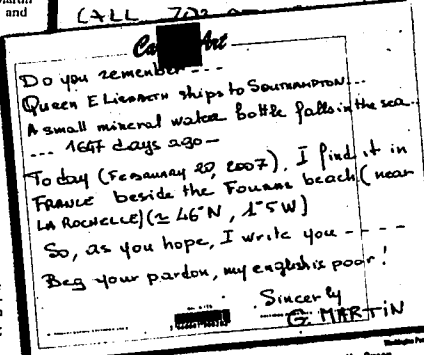 and
CALL
Art
Do you remember - - -
Queen ELIZABETH ships to SOUTHAMPTON...
A small mineral water bottle falls in the sea...
... 1647 days ago -
To day (FEBRUARY 20, 2007), I find it in
FRANCE beside the FOURAS beach (near
LA ROCHELLE) (≃ 46°N, 1°5 W)
So, as you hope, I write you - - - -
Beg your pardon, my english is poor!
Sincerly
G. MARTIN